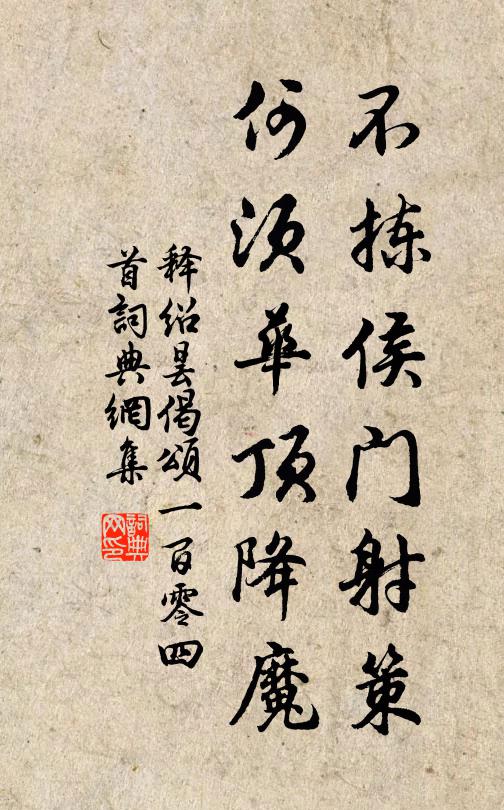 不拣侯门射策
何须华顶降魔
释绍昙偈颂一百零四
首词典网集
詞典网印